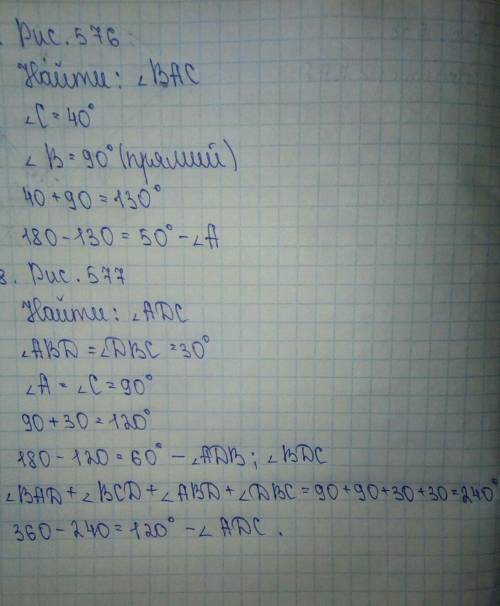 Рис. 576:
Найти: ∠BAC
∠C = 40°
∠B = 90° (прямий)
40 + 90 = 130°
180 - 130 = 50° - ∠A
8. Рис. 577
Найти: ∠ADC
∠ABD = ∠DBC = 30°
∠A = ∠C = 90°
90 + 30 = 120°
180 - 120 = 60° - ∠ADB; ∠BDC
∠BAD + ∠BCD + ∠ABD + ∠DBC = 90 + 90 + 30 + 30 = 240°
360 - 240 = 120° - ∠ADC.